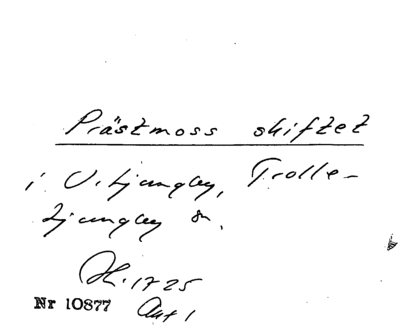 Prästmoss skiftet
i V. Ljungby, Trolle-
Ljungby sn.
Nr 10877 Akt 1